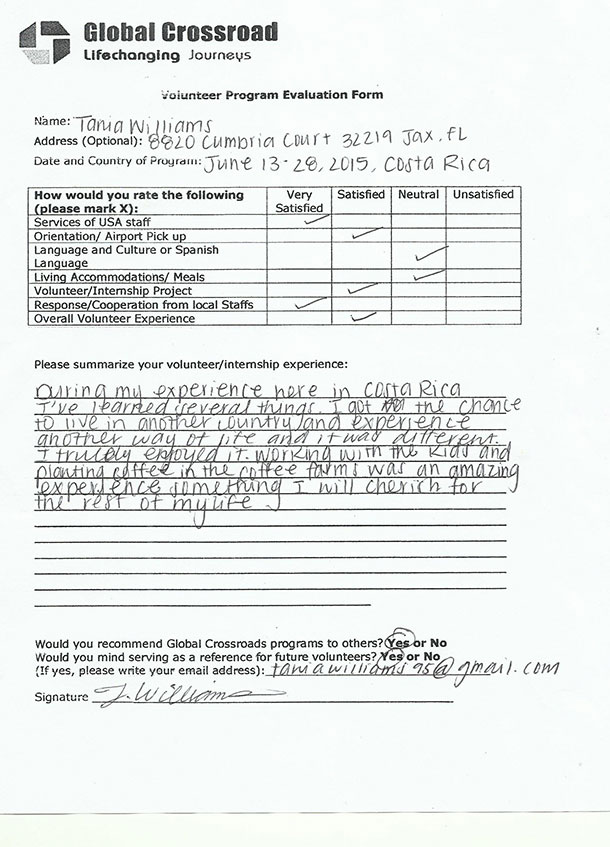 Global Crossroad
Lifechanging Journeys
Volunteer Program Evaluation Form
Name: Tania Williams
Address (Optional): 8820 Cumbria Court 32219 Jax, FL
Date and Country of Program: June 13-28, 2015, Costa Rica
How would you rate the following (please mark X): Very Satisfied Satisfied Neutral Unsatisfied
Services of USA staff ✓
Orientation/ Airport Pick up ✓
Language and Culture or Spanish Language ✓
Living Accommodations/ Meals ✓
Volunteer/Internship Project ✓
Response/Cooperation from local Staffs ✓
Overall Volunteer Experience ✓
Please summarize your volunteer/internship experience:
During my experience here in Costa Rica
I've learned several things. I got the chance
to live in another country and experience
another way of life and it was different.
I trulely enjoyed it. Working with the kids and
planting coffee in the coffee farms was an amazing
experience something I will cherish for
the rest of my life
Would you recommend Global Crossroads programs to others? Yes or No
Would you mind serving as a reference for future volunteers? Yes or No
(If yes, please write your email address): taniawilliams95@gmail.com
Signature T. Williams